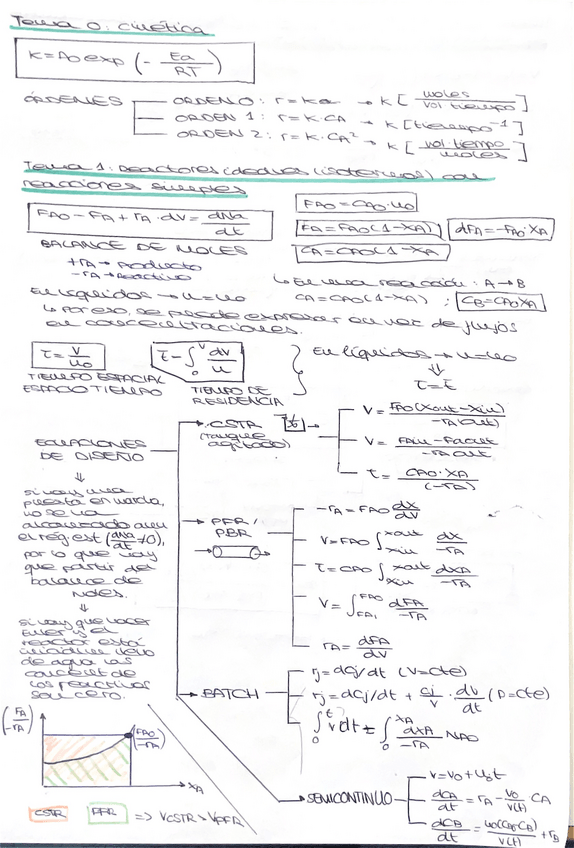 Tema 0: cinética
K = A0 exp (- Ea/RT)
ÓRDENES
ORDEN 0: r = k.a → K [moles/vol tiempo]
ORDEN 1: r = k.CA → K [tiempo⁻¹]
ORDEN 2: r = k.CA² → K [vol tiempo/moles]
Tema 1: Reactores ideales (isotermos) con
reacciones simples
FA0 - FA + rA · dV = dNa/dt
BALANCE DE MOLES
+rA → producto
-rA → reactivo
FA0 = CA0 · u0
FA = FA0(1-XA)
dFA = -FA0·XA
CA = CA0(1-XA)
↳ En una reacción: A → B
CA = CA0(1-XA) ; CB = CA0·XA
En líquidos → u = u0
↳ Por eso, se puede expresar en vez de flujos
en concentraciones.
τ = V/u0
TIEMPO ESPACIAL
ESPACIO TIEMPO
t̄ = ∫₀ⱽ dV/u
TIEMPO DE
RESIDENCIA
En líquidos → u = u0
⇓
τ = t̄
ECUACIONES
DE DISEÑO
⇓
si hay una
puesta en marcha,
no se ha
alcanzado aún
el rég. est (dNa/dt ≠ 0),
por lo que hay
que partir del
balance de
moles.
⇓
si hay que hacer
Euler y el
reactor está
inicialm. lleno
de agua las
concent. de
los reactivos
son cero.
CSTR
(tanque
agitado)
V = FA0(Xout - Xin)/-rA|out
V = FAin - FAout/-rA out
τ = CA0 · XA/(-rA)
PFR /
PBR
-rA = FA0 dX/dV
V = FA0 ∫ xin xout dX/-rA
τ = CA0 ∫ xin xout dXA/-rA
V = ∫ FA1 FA0 dFA/-rA
rA = dFA/dV
BATCH
rj = dCj/dt (V = cte)
rj = dCj/dt + Cj/V · dV/dt (P = cte)
∫₀ᵗ V dt = ∫₀ XA dXA/-rA NA0
SEMICONTINUO
V = V0 + u0t
dCA/dt = rA - u0/V(t) CA
dCB/dt = u0(CB0-CB)/V(t) + rB
(FA/-rA)
(FA0/-rA)
XA
CSTR PFR ⇒ VCSTR > VPFR